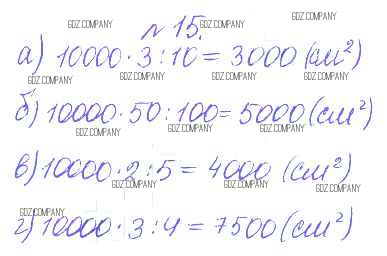 GDZ.COMPANY GDZ.COMPANY GDZ.COMPANY
№ 15.
а) 10000 · 3 : 10 = 3000 (см²)
GDZ.COMPANY GDZ.COMPANY GDZ.COMPANY GDZ.COMPANY
б) 10000 · 50 : 100 = 5000 (см²)
GDZ.COMPANY GDZ.COMPANY GDZ.COMPANY
в) 10000 · 2 : 5 = 4000 (см²)
GDZ.COMPANY GDZ.COMPANY GDZ.COMPANY GDZ.COMPANY
г) 10000 · 3 : 4 = 7500 (см²)
GDZ.COMPANY GDZ.COMPANY GDZ.COMPANY